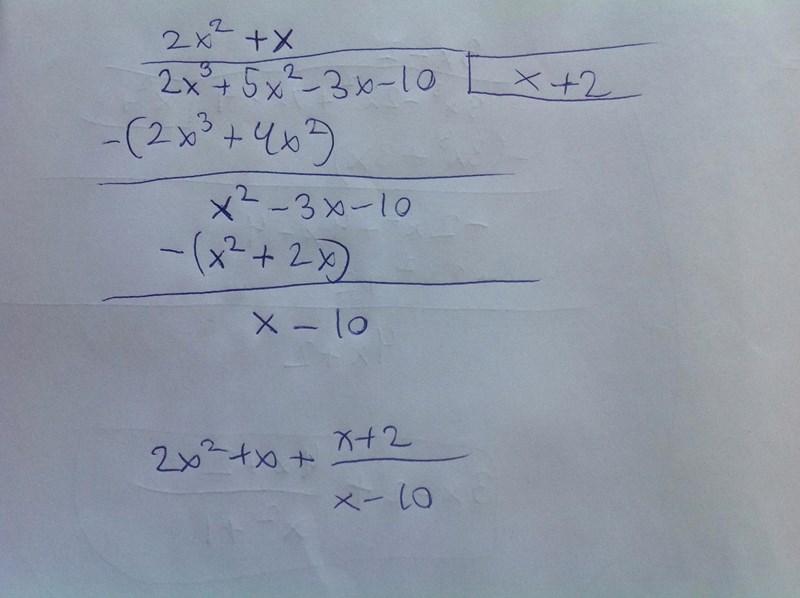 2x² + x
2x³ + 5x² - 3x - 10 x + 2
-(2x³ + 4x²)
x² - 3x - 10
-(x² + 2x)
x - 10
2x² + x + (x+2)/(x-10)